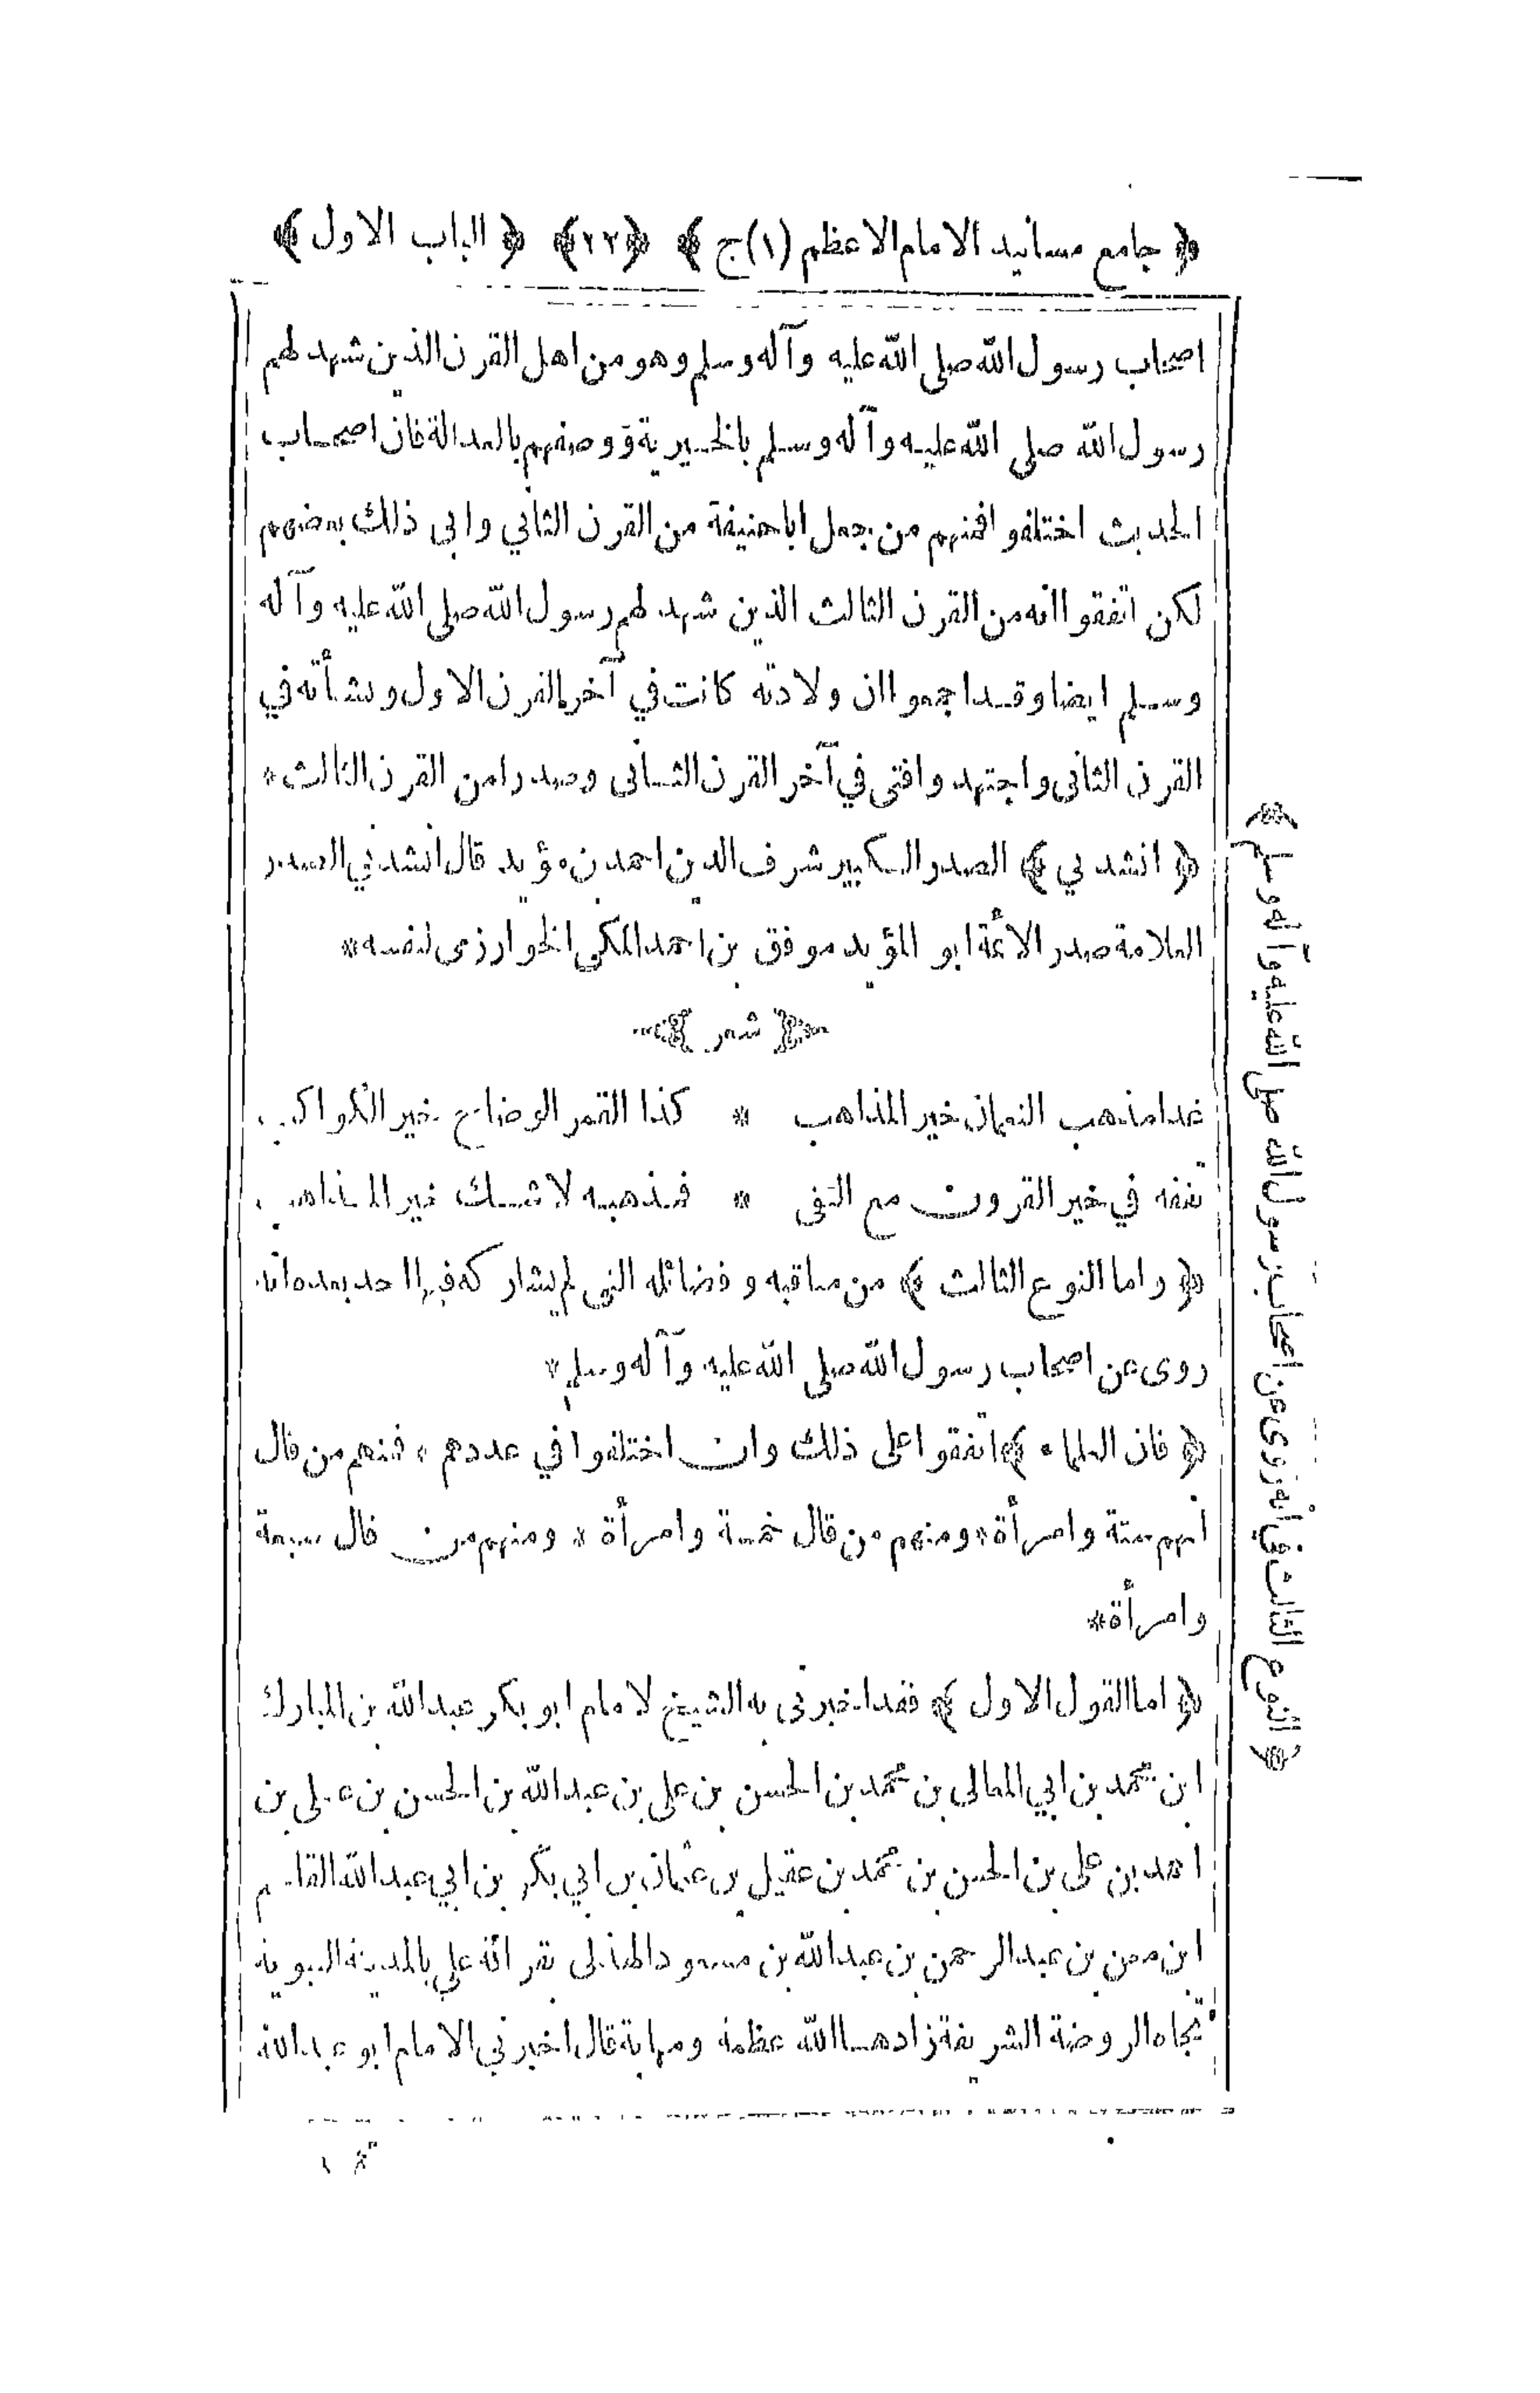 ﴿ جامع مسانيد الامام الاعظم (١) ج ﴾ ﴿٢٢﴾ ﴿ الباب الاول ﴾
اصحاب رسول الله صلى الله عليه وآله وسلم وهو من اهل القرن الذين شهد لهم
رسول الله صلى الله عليه وآله وسلم بالخيرية ووصفهم بالعدالة فان اصحاب
الحديث اختلفوا فمنهم من جعل اباحنيفة من القرن الثاني وابى ذلك بعضهم
لكن اتفقوا انه من القرن الثالث الذين شهد لهم رسول الله صلى الله عليه وآله
وسلم ايضا وقد اجمعوا ان ولادته كانت في آخر القرن الاول ونشأته في
القرن الثانى واجتهد وافتى في آخر القرن الثانى وصدرا من القرن الثالث *
﴿ انشدني ﴾ الصدر الكبير شرف الدين احمد بن مؤيد قال انشدني الصدر
العلامة صدر الائمة ابو المؤيد موفق بن احمد المكي الخوارزمى لنفسه *
شعر
غدا مذهب النعمان خير المذاهب * كذا القمر الوضاح خير الكواكب
تفقه في خير القرون مع التقى * فمذهبه لا شك خير المذاهب
﴿ واما النوع الثالث ﴾ من مناقبه وفضائله التي لم يشاركه فيها احد بعده انه
روى عن اصحاب رسول الله صلى الله عليه وآله وسلم *
﴿ فان العلماء ﴾ اتفقوا على ذلك وان اختلفوا في عددهم * فمنهم من قال
انهم ستة وامرأة * ومنهم من قال خمسة وامرأة * ومنهم من قال سبعة
وامرأة *
﴿ اما القول الاول ﴾ فقد اخبرنى به الشيخ الامام ابو بكر عبدالله بن المبارك
ابن محمد بن ابي المعالى بن محمد بن الحسن بن علي بن عبدالله بن الحسن بن علي بن
احمد بن على بن الحسن بن محمد بن عقيل بن عثمان بن ابي بكر بن ابي عبدالله القاسم
ابن معن بن عبدالرحمن بن عبدالله بن مسعود الهذلى بقرائة علي بالمدينة النبوية
تجاه الروضة الشريفة زادها الله عظمة ومهابة قال اخبرني الامام ابو عبدالله
﴿ النوع الثالث في أنه روى عن اصحاب رسول الله صلى الله عليه وآله وسلم ﴾